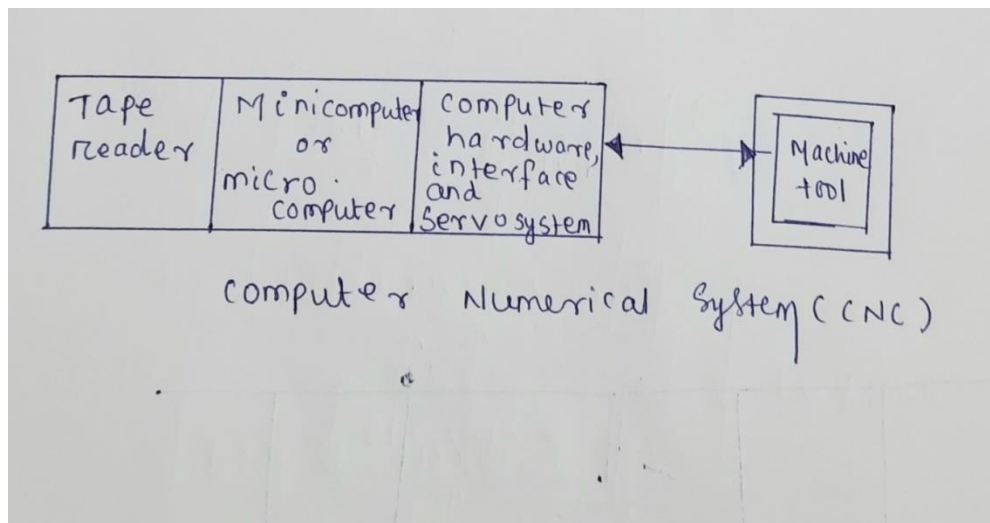 Tape
reader
Minicomputer
or
micro
computer
computer
hardware,
interface
and
servosystem
Machine
tool
computer Numerical System (CNC)